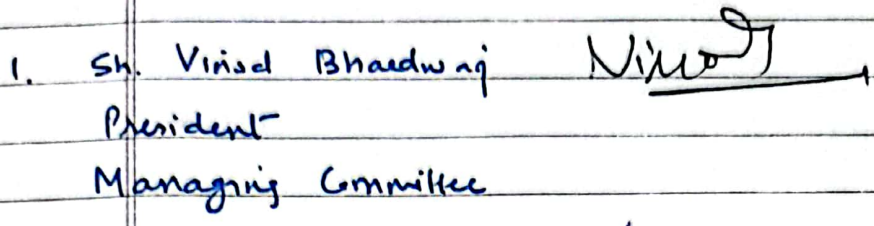 1. Sh. Vinod Bhardwaj
President
Managing Committee